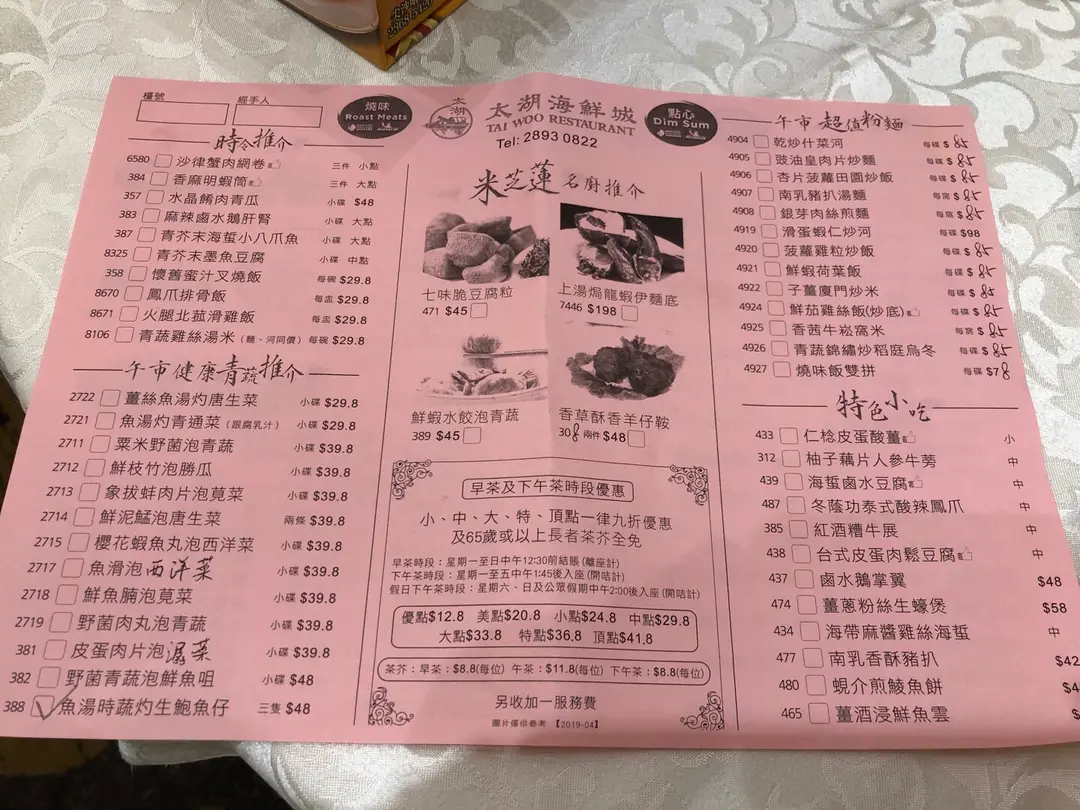 尖沙咀
2368 5420
檯號
經手人
燒味
Roast Meats
太湖
太湖海鮮城
TAI WOO RESTAURANT
Tel: 2893 0822
點心
Dim Sum
時令推介
6580 沙律蟹肉網卷 三件 小點
384 香麻明蝦筒 三件 大點
357 水晶餚肉青瓜 小碟 $48
383 麻辣鹵水鵝肝腎 小碟 大點
387 青芥末海蜇小八爪魚 小碟 大點
8325 青芥末墨魚豆腐 小碟 中點
358 懷舊蜜汁叉燒飯 每碗 $29.8
8670 鳳爪排骨飯 每盅 $29.8
8671 火腿北菰滑雞飯 每盅 $29.8
8106 青蔬雞絲湯米 (麵、河同價) 每碗 $29.8
午市健康青蔬推介
2722 薑絲魚湯灼唐生菜 小碟 $29.8
2721 魚湯灼青通菜 (跟腐乳汁) 小碟 $29.8
2711 粟米野菌泡青蔬 小碟 $39.8
2712 鮮枝竹泡勝瓜 小碟 $39.8
2713 象拔蚌肉片泡莧菜 小碟 $39.8
2714 鮮泥鯭泡唐生菜 兩條 $39.8
2715 櫻花蝦魚丸泡西洋菜 小碟 $39.8
2717 魚滑泡西洋菜 小碟 $39.8
2718 鮮魚腩泡莧菜 小碟 $39.8
2719 野菌肉丸泡青蔬 小碟 $39.8
381 皮蛋肉片泡潺菜 小碟 $39.8
382 野菌青蔬泡鮮魚咀 小碟 $48
388 魚湯時蔬灼生鮑魚仔 三隻 $48
米芝蓮名廚推介
七味脆豆腐粒
471 $45
上湯焗龍蝦伊麵底
7446 $198
鮮蝦水餃泡青蔬
389 $45
香草酥香羊仔鞍
308 兩件 $48
早茶及下午茶時段優惠
小、中、大、特、頂點一律九折優惠
及65歲或以上長者茶芥全免
早茶時段：星期一至日中午12:30前結賬 (離座計)
下午茶時段：星期一至五中午1:45後入座 (開咭計)
假日下午茶時段：星期六、日及公眾假期中午2:00後入座 (開咭計)
優點$12.8 美點$20.8 小點$24.8 中點$29.8
大點$33.8 特點$36.8 頂點$41.8
茶芥：早茶：$8.8(每位) 午茶：$11.8(每位) 下午茶：$8.8(每位)
另收加一服務費
圖片僅供參考 【2019-04】
午市超值粉麵
4904 乾炒什菜河 每碟 $85
4905 豉油皇肉片炒麵 每碟 $85
4906 杏片菠蘿田園炒飯 每碟 $85
4907 南乳豬扒湯麵 每窩 $85
4908 銀芽肉絲煎麵 每碟 $85
4919 滑蛋蝦仁炒河 每碟 $98
4920 菠蘿雞粒炒飯 每碟 $85
4921 鮮蝦荷葉飯 每碟 $85
4922 子薑廈門炒米 每碟 $85
4924 鮮茄雞絲飯(炒底) 每碟 $85
4925 香茜牛崧窩米 每窩 $85
4926 青蔬錦繡炒稻庭烏冬 每碟 $85
4927 燒味飯雙拼 每碟 $78
特色小吃
433 仁稔皮蛋酸薑 小
312 柚子藕片人參牛蒡 中
439 海蜇鹵水豆腐 中
487 冬蔭功泰式酸辣鳳爪 中
385 紅酒糟牛展 中
438 台式皮蛋肉鬆豆腐 中
437 鹵水鵝掌翼 $48
474 薑蔥粉絲生蠔煲 $58
434 海帶麻醬雞絲海蜇 中
477 南乳香酥豬扒 $42
480 蜆介煎鯪魚餅 $4
465 薑酒浸鮮魚雲 $